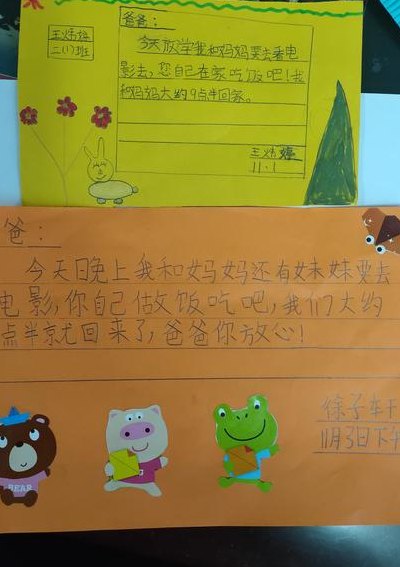 爸爸：
王炜婷
二(1)班
今天放学我和妈妈要去看电
影去，您自己在家吃饭吧！我
和妈妈大约9点半回家。
王炜婷
11.1
爸：
今天日晚上我和妈妈还有妹妹要去
电影，你自己做饭吃吧，我们大约
点半就回来了，爸爸你放心！
徐子
11月3日下午
BEAR